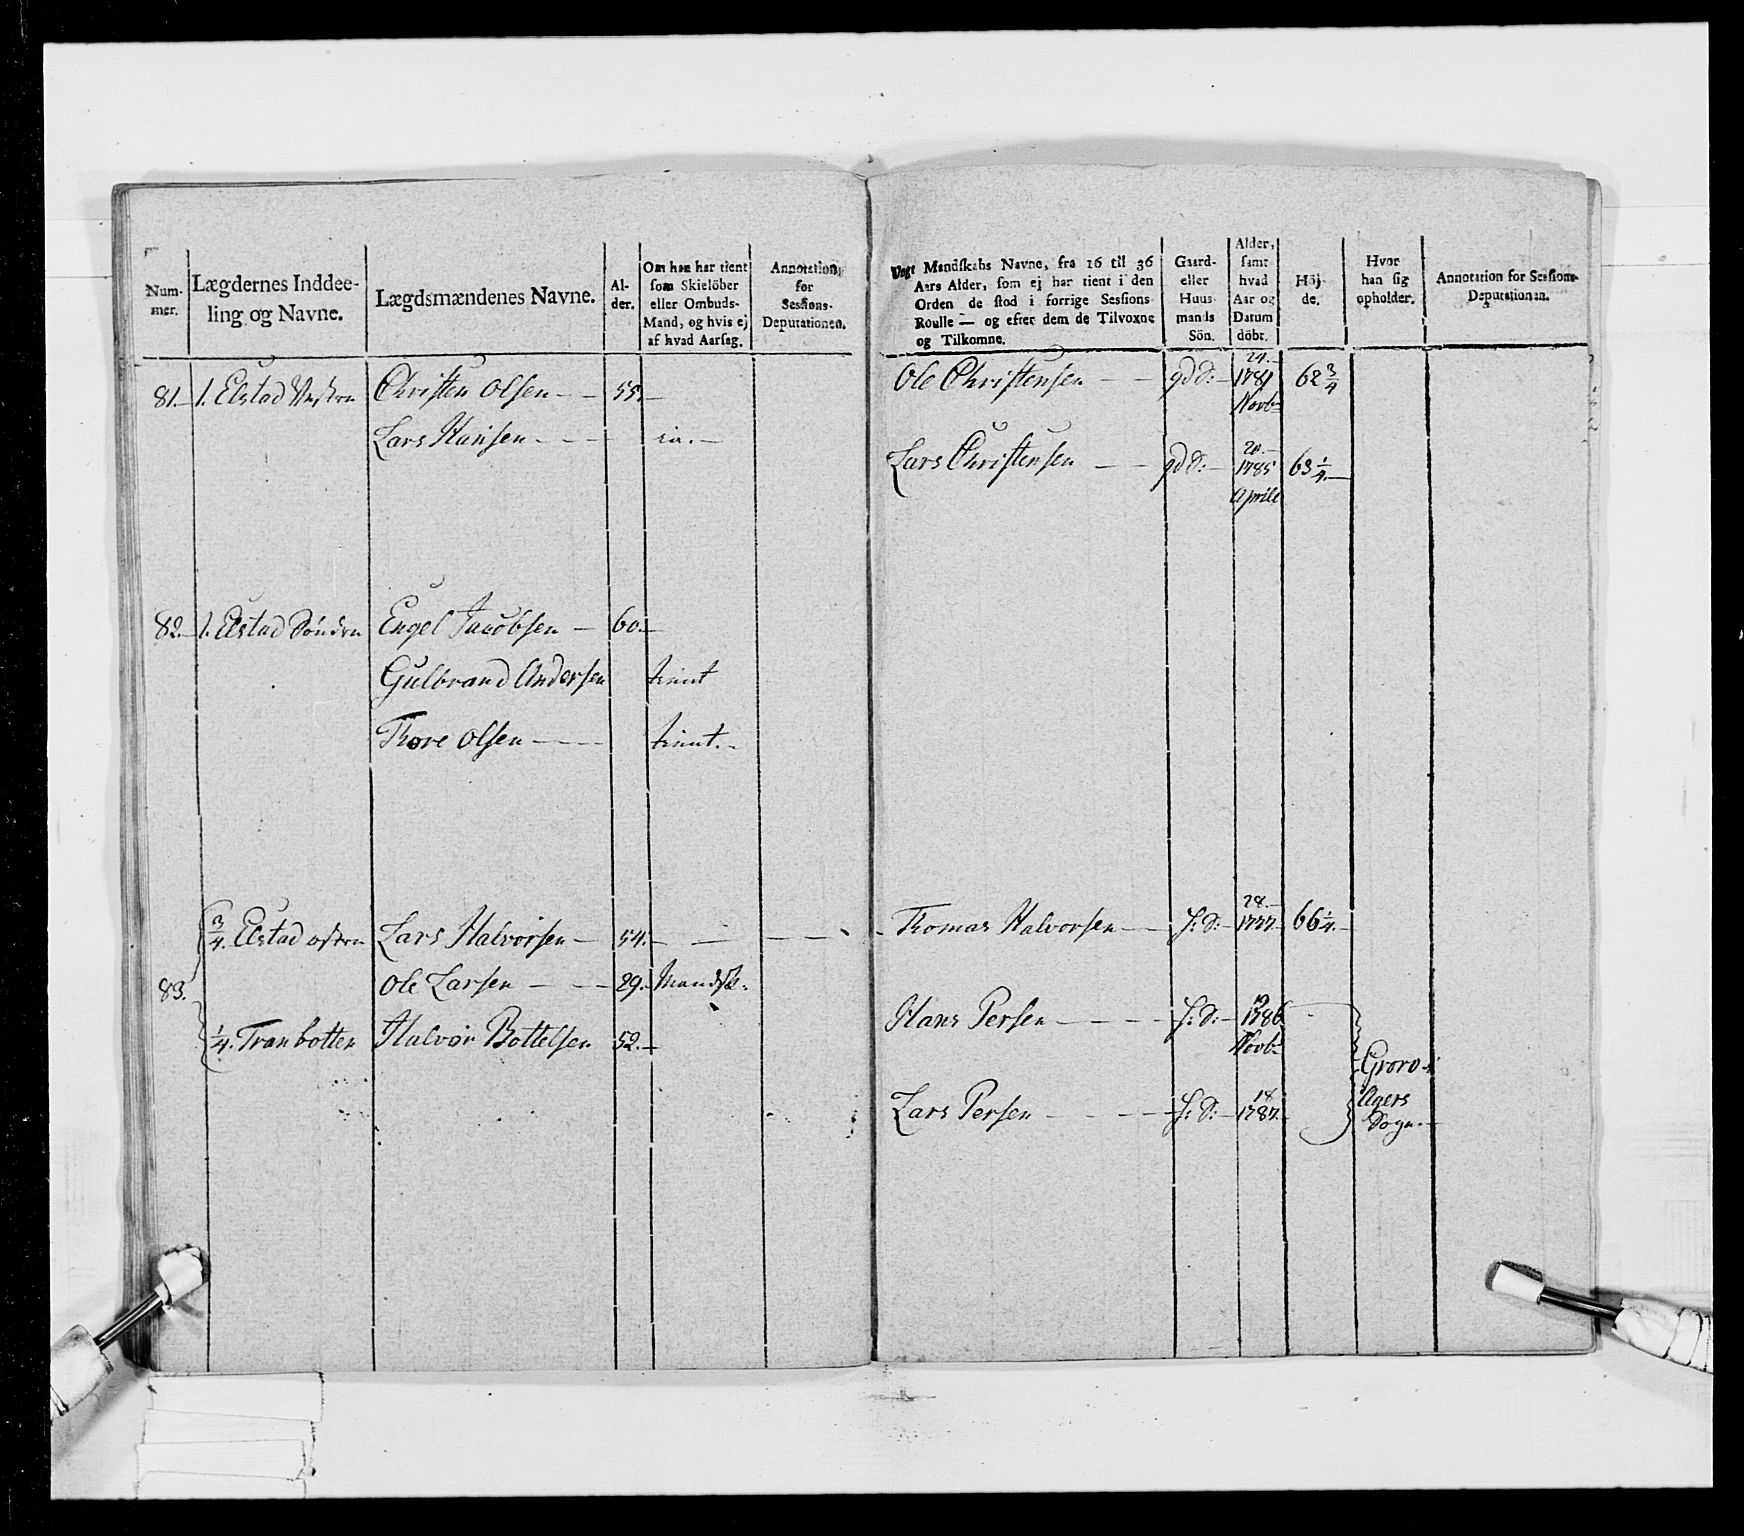 Num-
mer.
Lægdernes Inddee-
ling og Navne.
Lægdsmændenes Navne.
Al-
der.
Om han har tient
som Skielöber
eller Ombuds-
Mand, og hvis ej
af hvad Aarsag.
Annotation
for
Sessions-
Deputationen.
81. 1. Elstad Vestre Christen Olsen 55.
Lars Hansen
82. 1. Elstad Søndre Engel Jacobsen 60.
Gulbrand Andersen tient
Thore Olsen tient.
3/4. Elstad østre Lars Halvorsen 54.
83.
Ole Larsen 29. Mandsk.
1/4. Tranbotten Halvor Bottelsen 52.
Ungt Mandskabs Navne, fra 16 til 36
Aars Alder, som ej har tient i den
Orden de stod i forrige Sessions
Roulle — og efter dem de Tilvoxne
og Tilkomne.
Gaard-
eller
Huus-
mands
Sön.
Alder,
samt
hvad
Aar og
Datum
döbt.
Höj-
de.
Hvor
han sig
opholder.
Annotation for Sessions-
Deputationen.
24.
Ole Christensen gd S: 1781 62 3/4
Novb
20.
Lars Christensen gd S: 1785 63 1/4.
Aprile
28.
Thomas Halvorsen h: S: 1777. 66 1/4.
19
Hans Persen h: S: 1786
Novb
Grorud i
18
Agers
Lars Persen h: S: 1787.
Sogn.